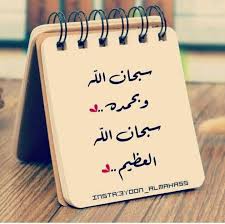 سبحان الله
وبحمده ..
سبحان الله
العظيم ..
INSTA:3YOON_ALMAHA55